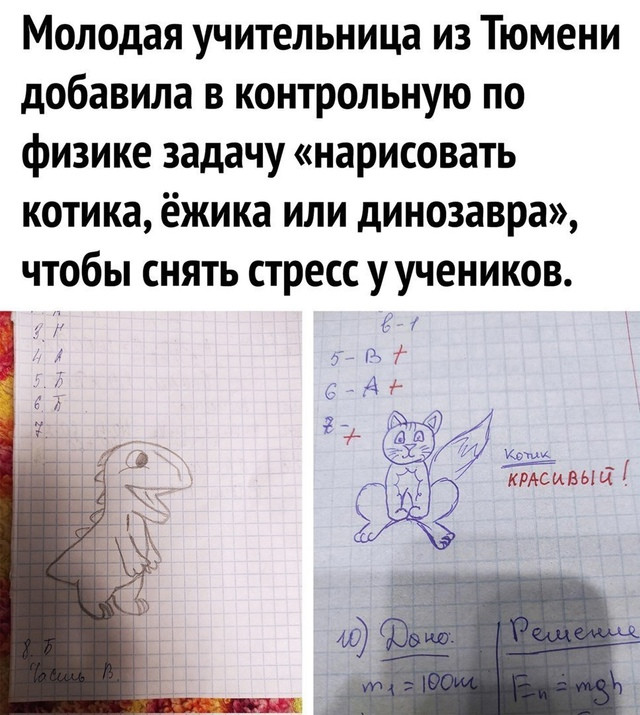 Молодая учительница из Тюмени
добавила в контрольную по
физике задачу «нарисовать
котика, ёжика или динозавра»,
чтобы снять стресс у учеников.
4 А
5. Б
6 Б
7.
8. Б
Часть В.
в-1
5 - В +
6 - А +
7 - +
Котик
КРАСИВЫЙ!
10) Дано:
Решение
m₁ = 100
Eп = mgh